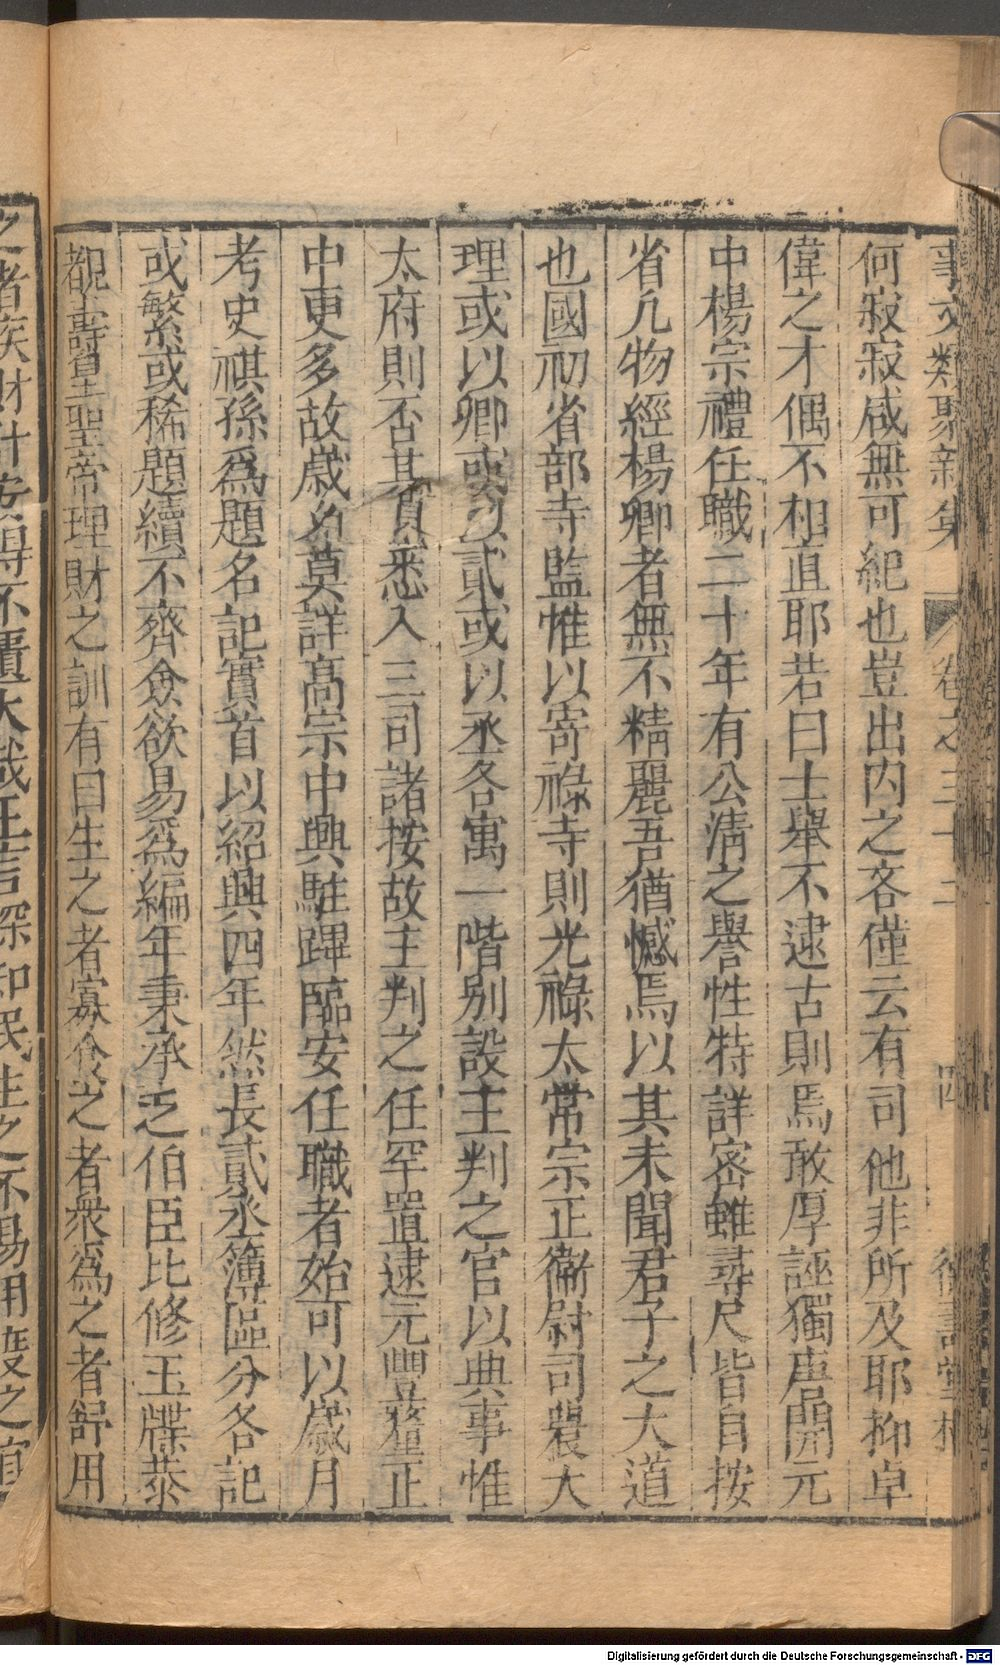 事文類聚新集 卷之三十二 四 德壽堂梓
何寂寂咸無可紀也豈出内之吝僅云有司他非所及耶抑卓
偉之才偶不相直耶若曰士舉不逮古則焉敢厚誣獨唐開元
中楊宗禮任職二十年有公淸之譽性特詳密雖尋尺皆自按
省凡物經楊卿者無不精麗吾猶憾焉以其未聞君子之大道
也國初省部寺監惟以寄祿寺則光祿太常宗正衞尉司農大
理或以卿或以貳或以丞各寓一階别設主判之官以典事惟
太府則否其實悉入三司諸按故主判之任罕置逮元豐釐正
中更多故歲多莫詳髙宗中興駐蹕臨安任職者始可以歲月
考史祺孫爲題名記實首以紹興四年然長貳丞簿區分各記
或繁或稀題續不齊僉欲易爲編年秉承乏伯臣比修玉牒恭
覩壽皇聖帝理財之訓有曰生之者寡食之者衆爲之者舒用
之者疾財計安得不匱大哉王言深知民生之不易用度之宜
Digitalisierung gefördert durch die Deutsche Forschungsgemeinschaft - DFG